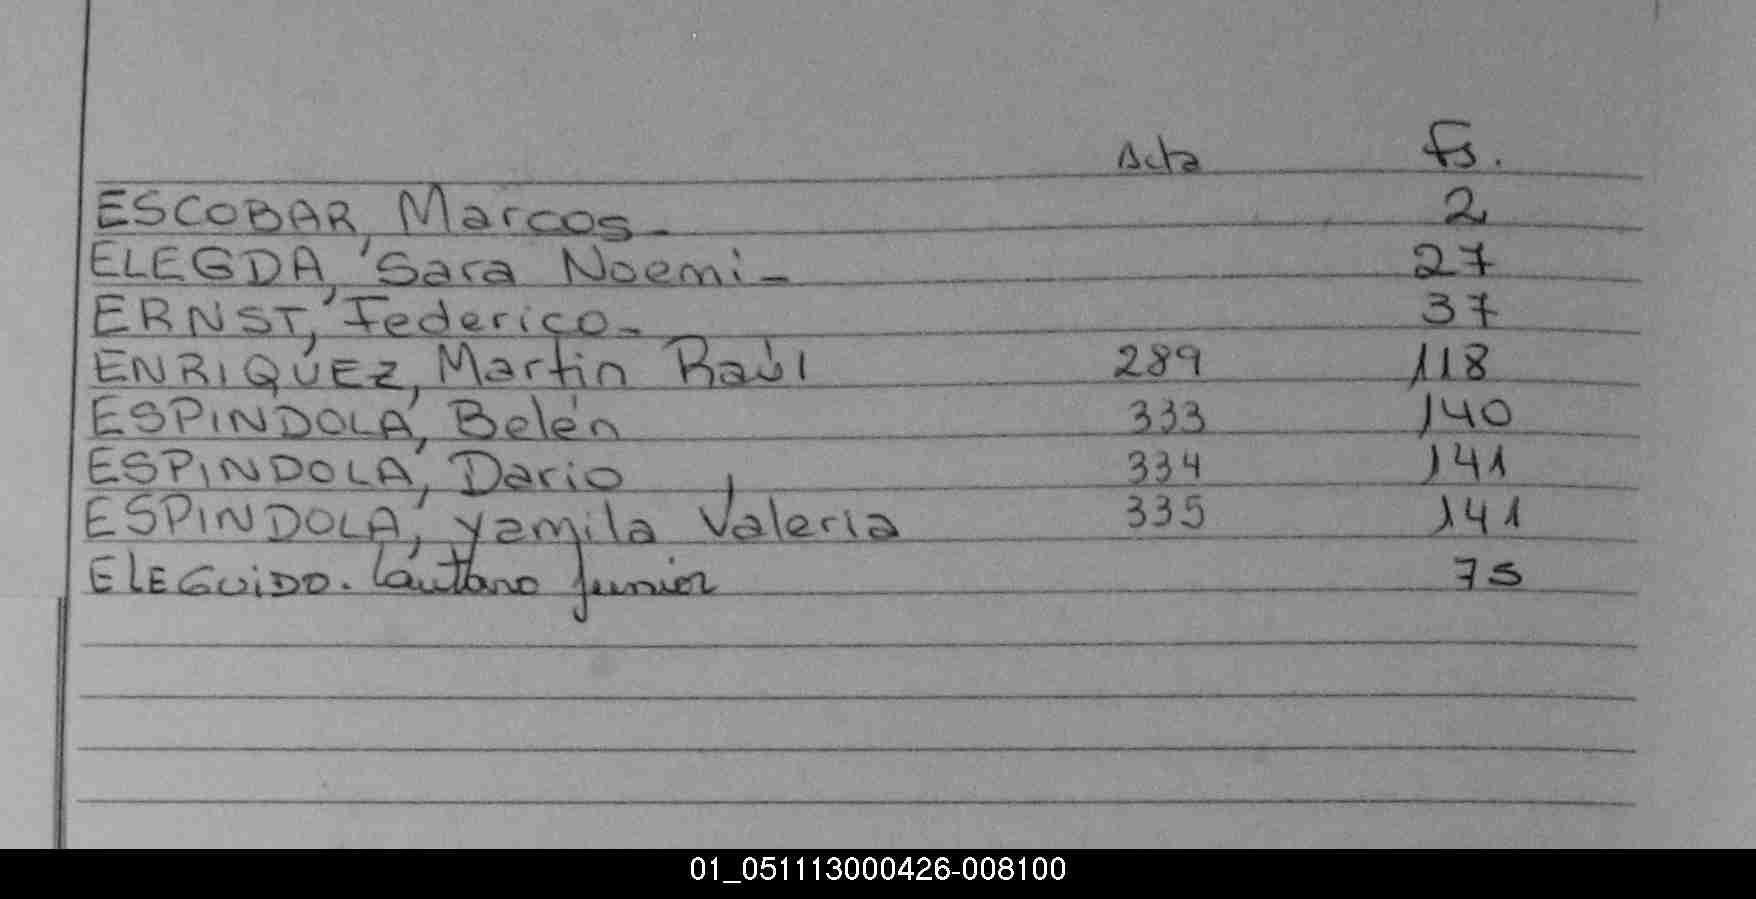 Acta Fs.
ESCOBAR, Marcos- 2
ELEGDA, Sara Noemi- 27
ERNST, Federico- 37
ENRIQUEZ, Martin Raúl 289 118
ESPINDOLA, Belén 333 140
ESPINDOLA, Dario 334 141
ESPINDOLA, Yamila Valeria 335 141
ELEGUiDO. Lautaro Junior 75
01_051113000426-008100